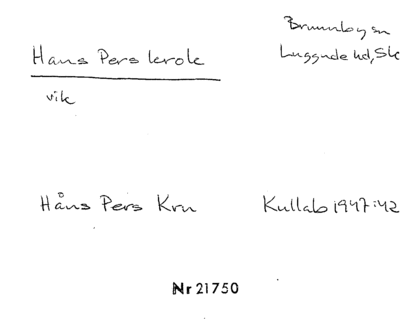 Brunnby sn
Hans Pers krok
Luggude hd, Sk
vik
Håns Pers Kru Kullab 1947:42
Nr 21750